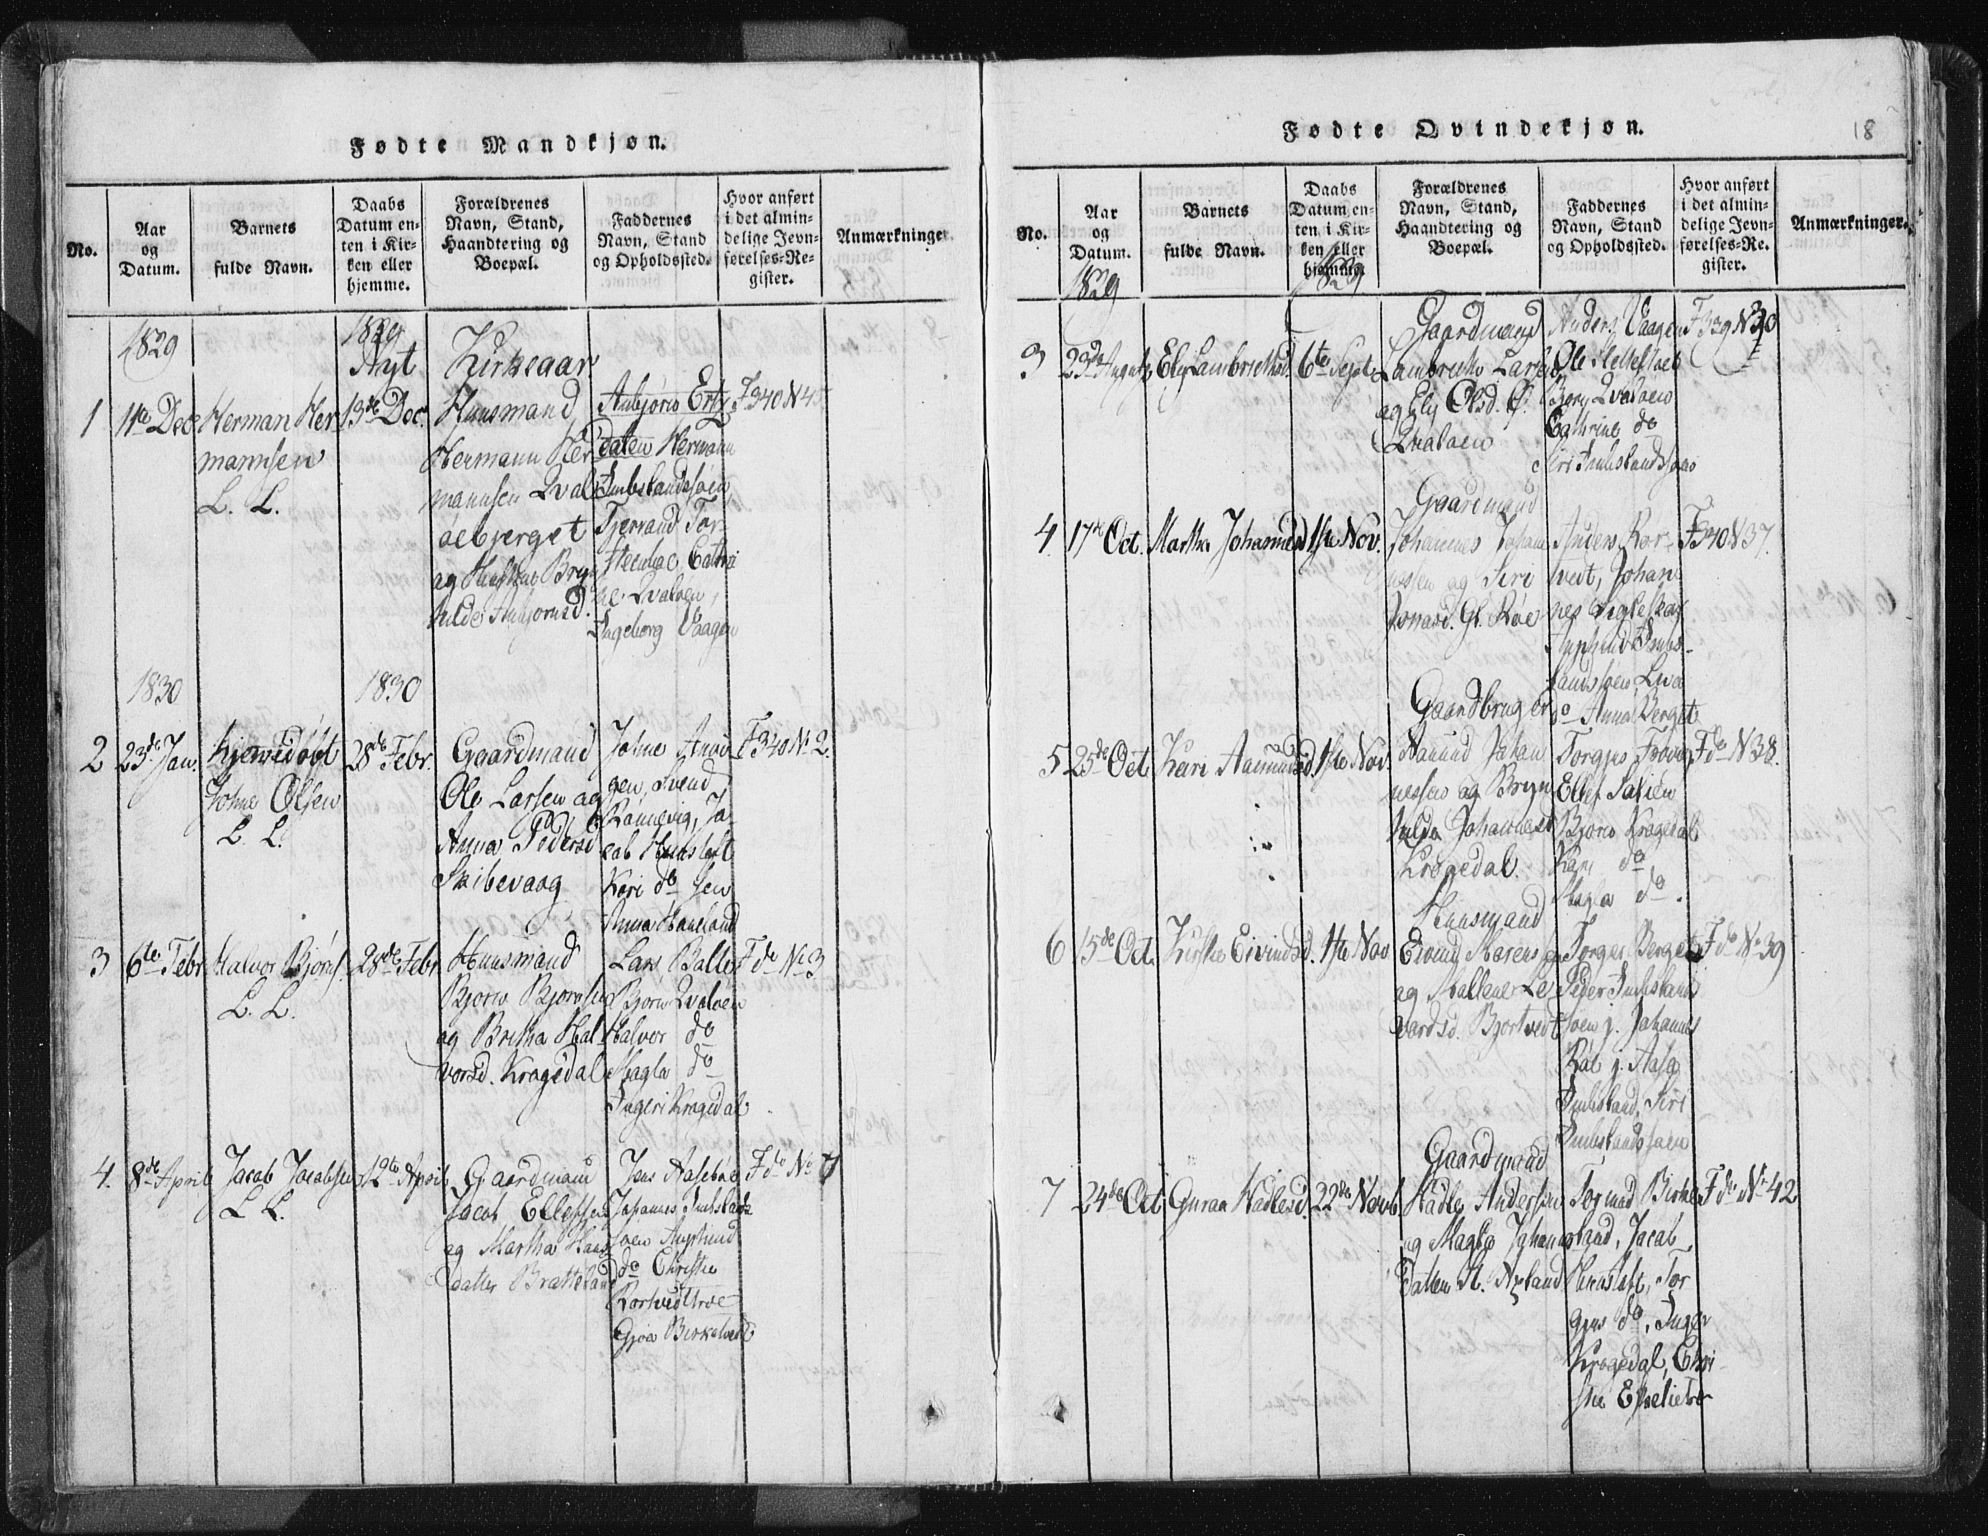 Fødte Mandkjøn.
No.
Aar
og
Datum.
Barnets
fulde Navn.
Daabs
Datum en-
ten i Kir-
ken eller
hjemme.
Forældrenes
Navn, Stand,
Haandtering og
Boepæl.
Faddernes
Navn, Stand
og Opholdssted.
Hvor anført
i det almin-
delige Jevn-
førelses-Re-
gister.
Anmærkninger.
1829
1829
Nyt Kirkeaar
1
11te Dec
Herman Her
mannsen
L. L.
13de Dec.
Huusmand
Hermann Her
mannsen Qval
øebjerget
og Bryn
hilde Anbjørnsd.
Anbjørn
Hermann
Imbslandssøen
Tjerrand Tor
Cathri
ne Qvaløen,
Ingeborg Vaagen
F340 N4
1830
1830
2
23de Jan.
John Olsen
L. L.
28de Febr.
Gaardmand
Ole Larsen og
Anna Pedersd
Skibevaag
Johne
gen, Svend
Rønnevig, Ja
cob
Kari do
Anna Haaland
F340 N 2.
3
6te Febr
Halvor Bjørns.
L. L.
28de Febr.
Huusmand
Bjørn Bjørnsen
og Britha Hal
vorsd. Kragedal
Lars
Bjørn Qvaløen
Halvor do
Magla do
Ingeri Kragedal
F do No 3
4.
8de April
Jacob Jacobsen
L L.
12te April
Gaardmand
Jacob Ellefsen
og Martha Hans
datter Bratteland
Jens Aasebøe
Johannes Imbsland
søen
do Christie
Gjøa
F do No 7
Fødte Qvindekjøn.
18
No.
Aar
og
Datum.
Barnets
fulde Navn.
Daabs
Datum en-
ten i Kir-
ken eller
hjemme.
Forældrenes
Navn, Stand,
Haandtering og
Boepæl.
Faddernes
Navn, Stand
og Opholdssted.
Hvor anført
i det almin-
delige Jevn-
førelses-Re-
gister.
Anmærkninger.
1829
1829
3
23de August
Ely Lambrethsd.
6te Septe
Gaardmand
Lambrecth Larsen
og Ely Olsd.
Qvaløen
Anders Vaagen
Ole
Qvaløen
Cathrine do
Siri Imbslandssøen
F339 N30
4
17de Oct.
Martha Johannesd
1ste Nov.
Gaardmand
Johannes Johan
nessen og Siri
Jonasd. Gl. Røe
Anders Kor
tvedt, Johan
nes
Imbs-
landssøen,
do Anna Berget
F340 N37.
5
25de Oct
Kari Aamundsd.
1ste Nov
Gaardbruger
Aamund Johan
nessen og Bryn
hilde Johannesd
Kragedal.
Torgjus
Ellef
Bjørn Kragedal
Kari do
Magla do.
F do N38.
6
15de Oct.
Kirstie Eivindsd.
1ste Nov
Huusmand
Eivind
og
vardsd. Bjortvedt
Torgjus Berget
Peder Imbsland
søen j. Johannes
Røe j. Aasg
Imbsland, Siri
Imbslandssøen
F do No 39
7
24de Oct
Guraa Hadlesd.
22de Novb
Gaardmand
Hadle Andersen
og Magla Johannes
datter N. Axland
Tormod Birke
land, Jacob
Tor
gjus do, Inger
Kragedal, Chri
stie
F do No 42